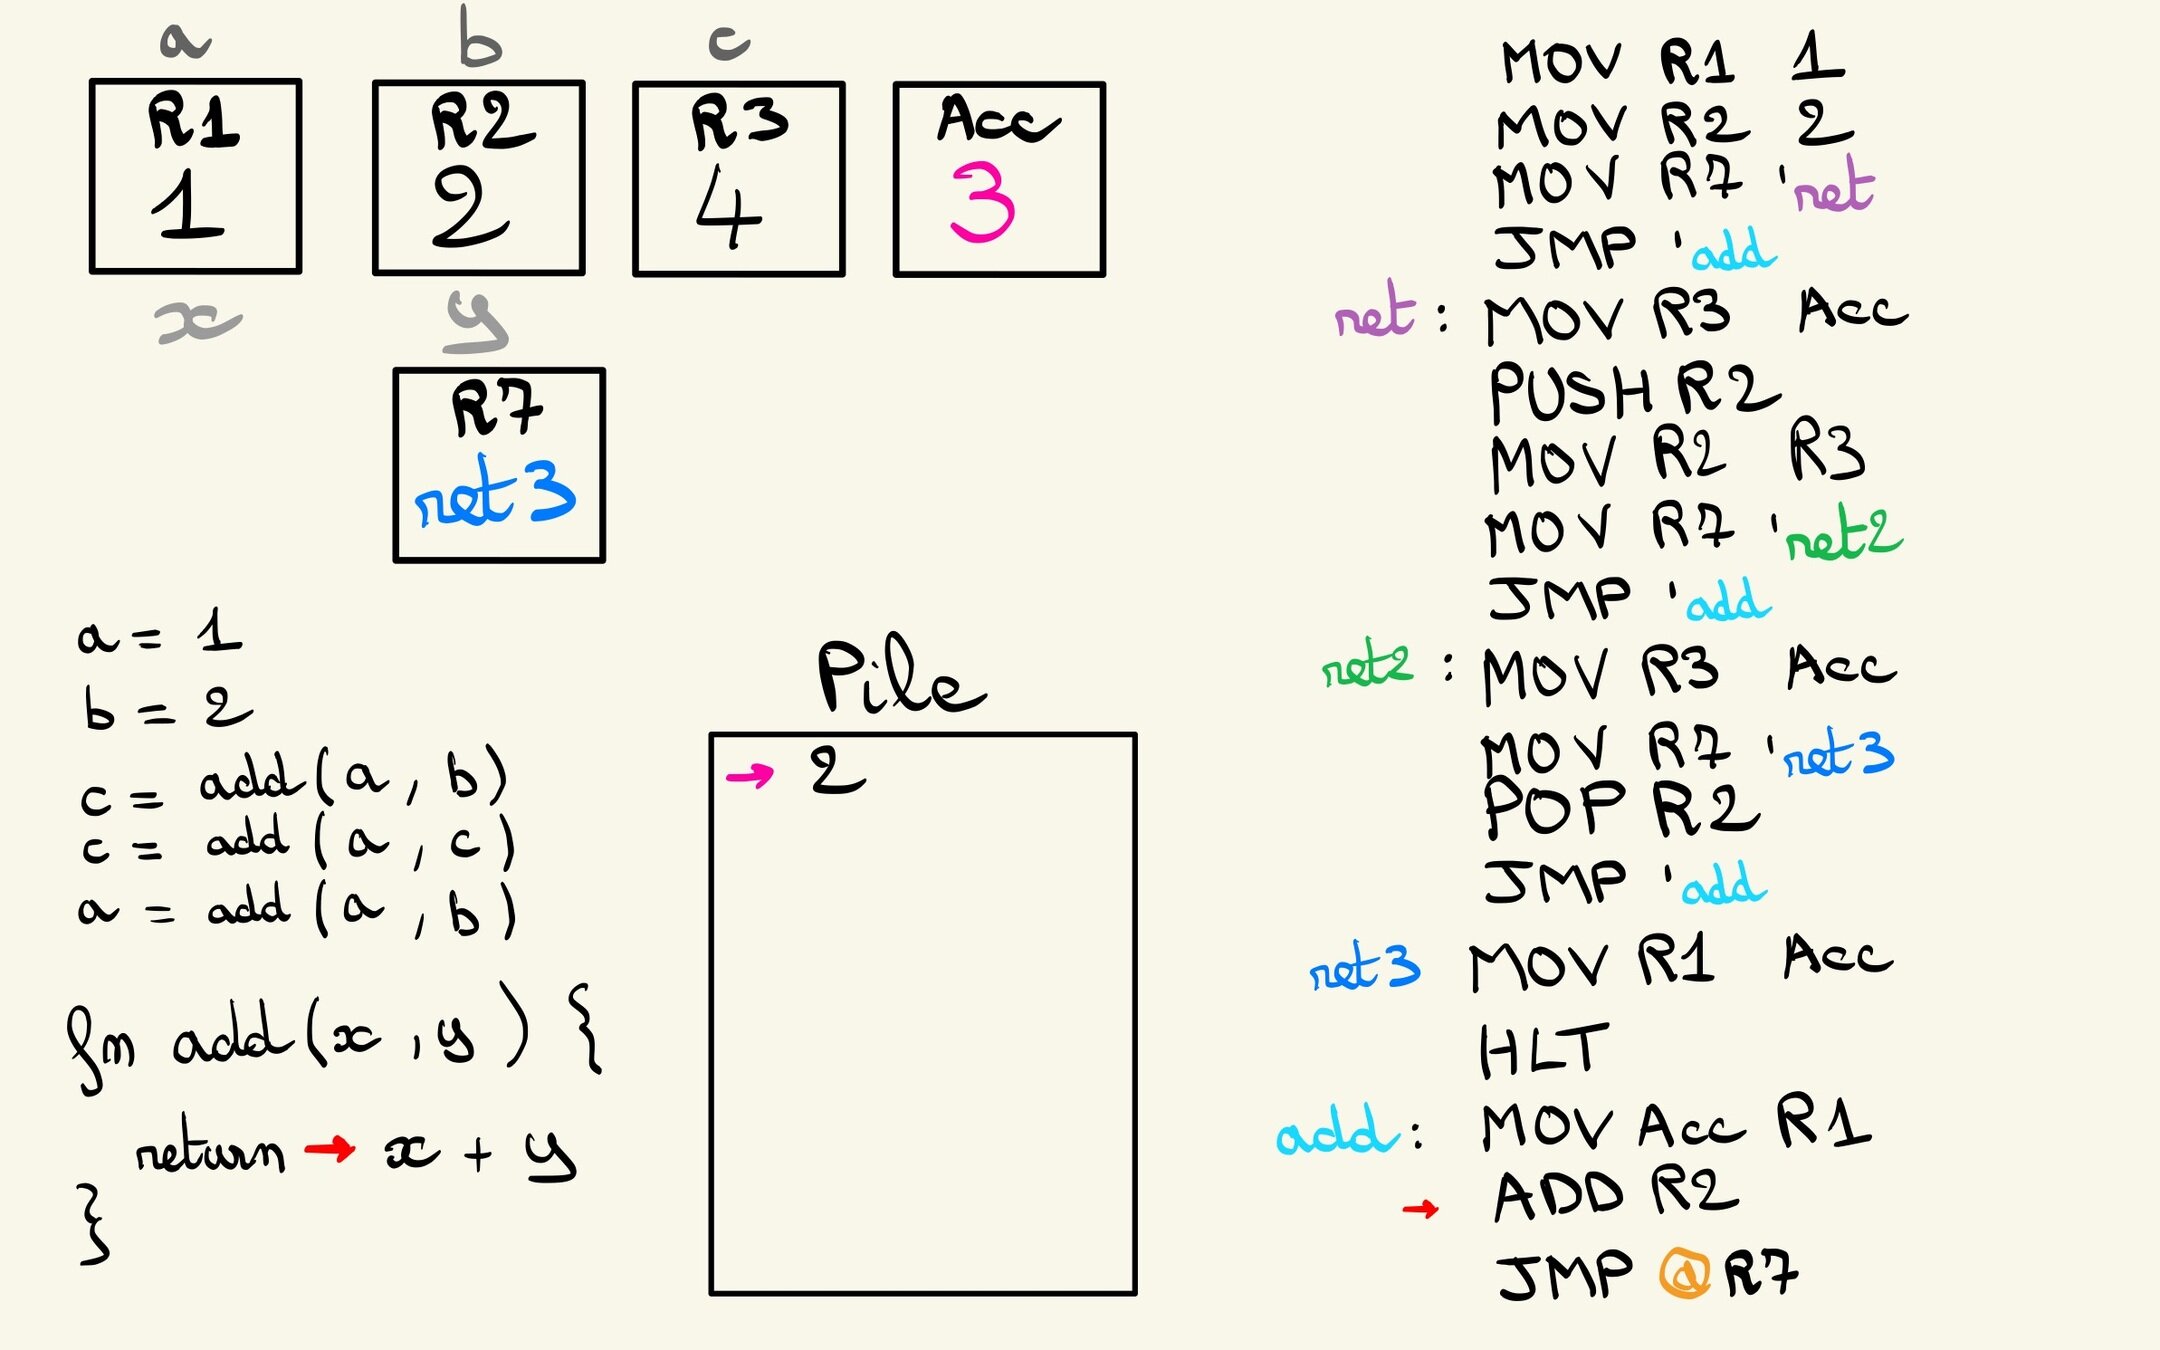 a b c
R1 R2 R3 Acc
1 2 4 3
x y
R7
ret3
a = 1
b = 2
c = add(a, b)
c = add(a, c)
a = add(a, b)
fn add(x, y) {
return → x + y
}
Pile
→ 2
MOV R1 1
MOV R2 2
MOV R7 'ret
JMP 'add
ret: MOV R3 Acc
PUSH R2
MOV R2 R3
MOV R7 'ret2
JMP 'add
ret2: MOV R3 Acc
MOV R7 'ret3
POP R2
JMP 'add
ret3 MOV R1 Acc
HLT
add: MOV Acc R1
→ ADD R2
JMP @R7